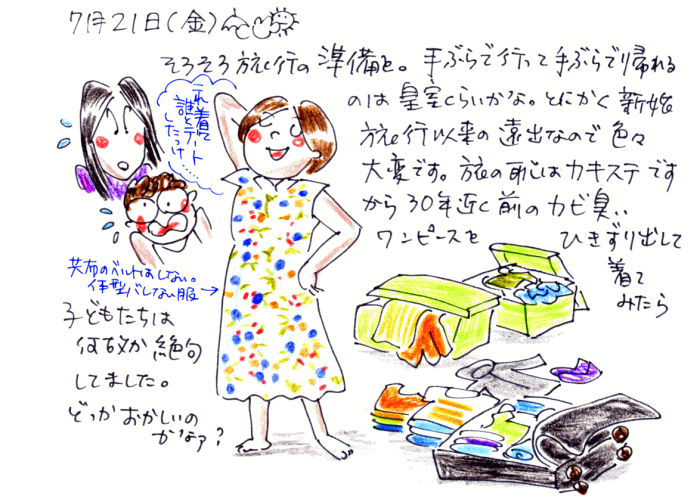 7月21日(金)
そろそろ旅行の準備を。手ぶらで行って手ぶらで帰れる
のは皇室くらいかな。とにかく新婚
旅行以来の遠出なので色々
大変です。旅の恥はカキステです
から30年近く前のカビ臭い
ワンピースを ひきずり出して
着て
みたら
これ着て
誰とデート
したっけ…
共布のベルトはしない。
体型バレない服→
子どもたちは
何故か絶句
してました。
どっかおかしいの
かなァ?